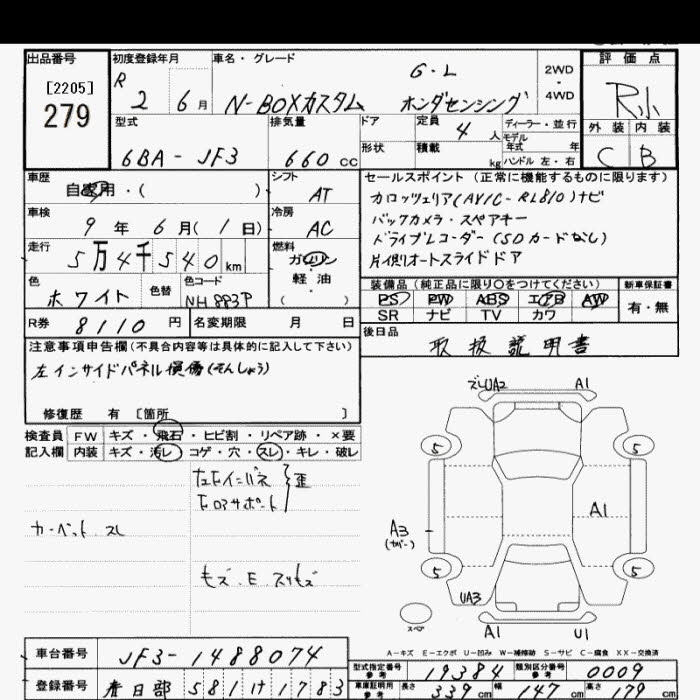 出品番号
[2205]
279
初度登録年月
R 2 6 月
車名・グレード
G・L
N-BOXカスタム ホンダセンシング
2WD
・
4WD
評価点
R小
外装 内装
C B
型式
6BA - JF3
排気量
660 cc
ドア
形状
定員 4 人
積載 kg
ディーラー・並行
モデル
年式 年
ハンドル 左・右
車歴
自家用・( )
シフト
AT
車検
9 年 6 月 ( 1 日)
冷房
AC
走行
5万4千540 km
燃料
ガソリン
軽油
( )
色
ホワイト
色替
色コード
NH883P
R券 8110 円
名変期限 月 日
セールスポイント (正常に機能するものに限ります)
カロッツェリア(AVIC-RL810)ナビ
バックカメラ・スペアキー
ドライブレコーダー(SDカードなし)
片側オートスライドドア
装備品 (純正品に限り○をつけてください)
新車保証書
PS PW ABS エアB AW
SR ナビ TV カワ
有・無
後日品
取扱説明書
注意事項申告欄 (不具合内容等は具体的に記入して下さい)
左インサイドパネル損傷(そんしょう)
修復歴 有 〔箇所 〕
検査員
記入欄
FW キズ・飛石・ヒビ割・リペア跡・×要
内装 キズ・汚レ・コゲ・穴・スレ・キレ・破レ
歪
カーペット スレ
ズレUA2
A1
5
5
A1
A3
5
5
UA3
スペア
A1
U1
A-キズ E-エクボ U-凹み W-補修跡 S-サビ C-腐食 XX-交換済
車台番号
JF3-1488074
登録番号
春日部 581 け 1783
型式指定番号
参考
19384
類別区分番号
参考
0009
車庫証明用
参考
長さ 339 cm 幅 147 cm 高さ 179 cm